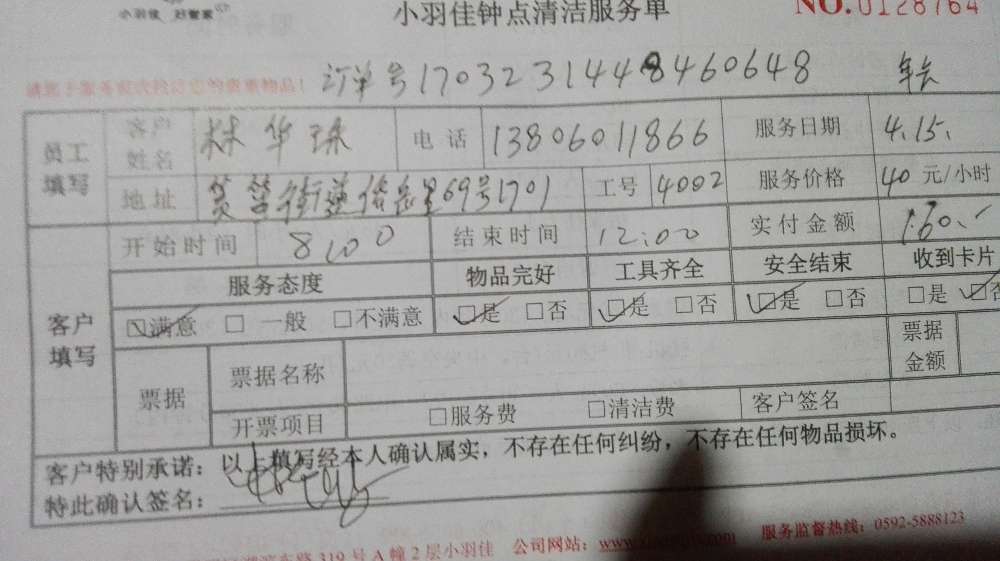 小羽佳 好管家
小羽佳钟点清洁服务单
NO.0128764
订单号1703231448460648
员工填写
客户姓名 林华珠 电话 13806011866 服务日期 4.15.
地址 筼筜街道 里69号1701 工号 4002 服务价格 40 元/小时
开始时间 8:00 结束时间 12:00 实付金额 160.
客户填写
服务态度 物品完好 工具齐全 安全结束 收到卡片
☑满意 □一般 □不满意 ☑是 □否 ☑是 □否 ☑是 □否 □是 ☑否
票据 票据名称 票据金额
开票项目 □服务费 □清洁费 客户签名
客户特别承诺：以上填写经本人确认属实，不存在任何纠纷，不存在任何物品损坏。
特此确认签名：
东路319号A幢2层小羽佳 公司网站：www. 服务监督热线：0592-5888123